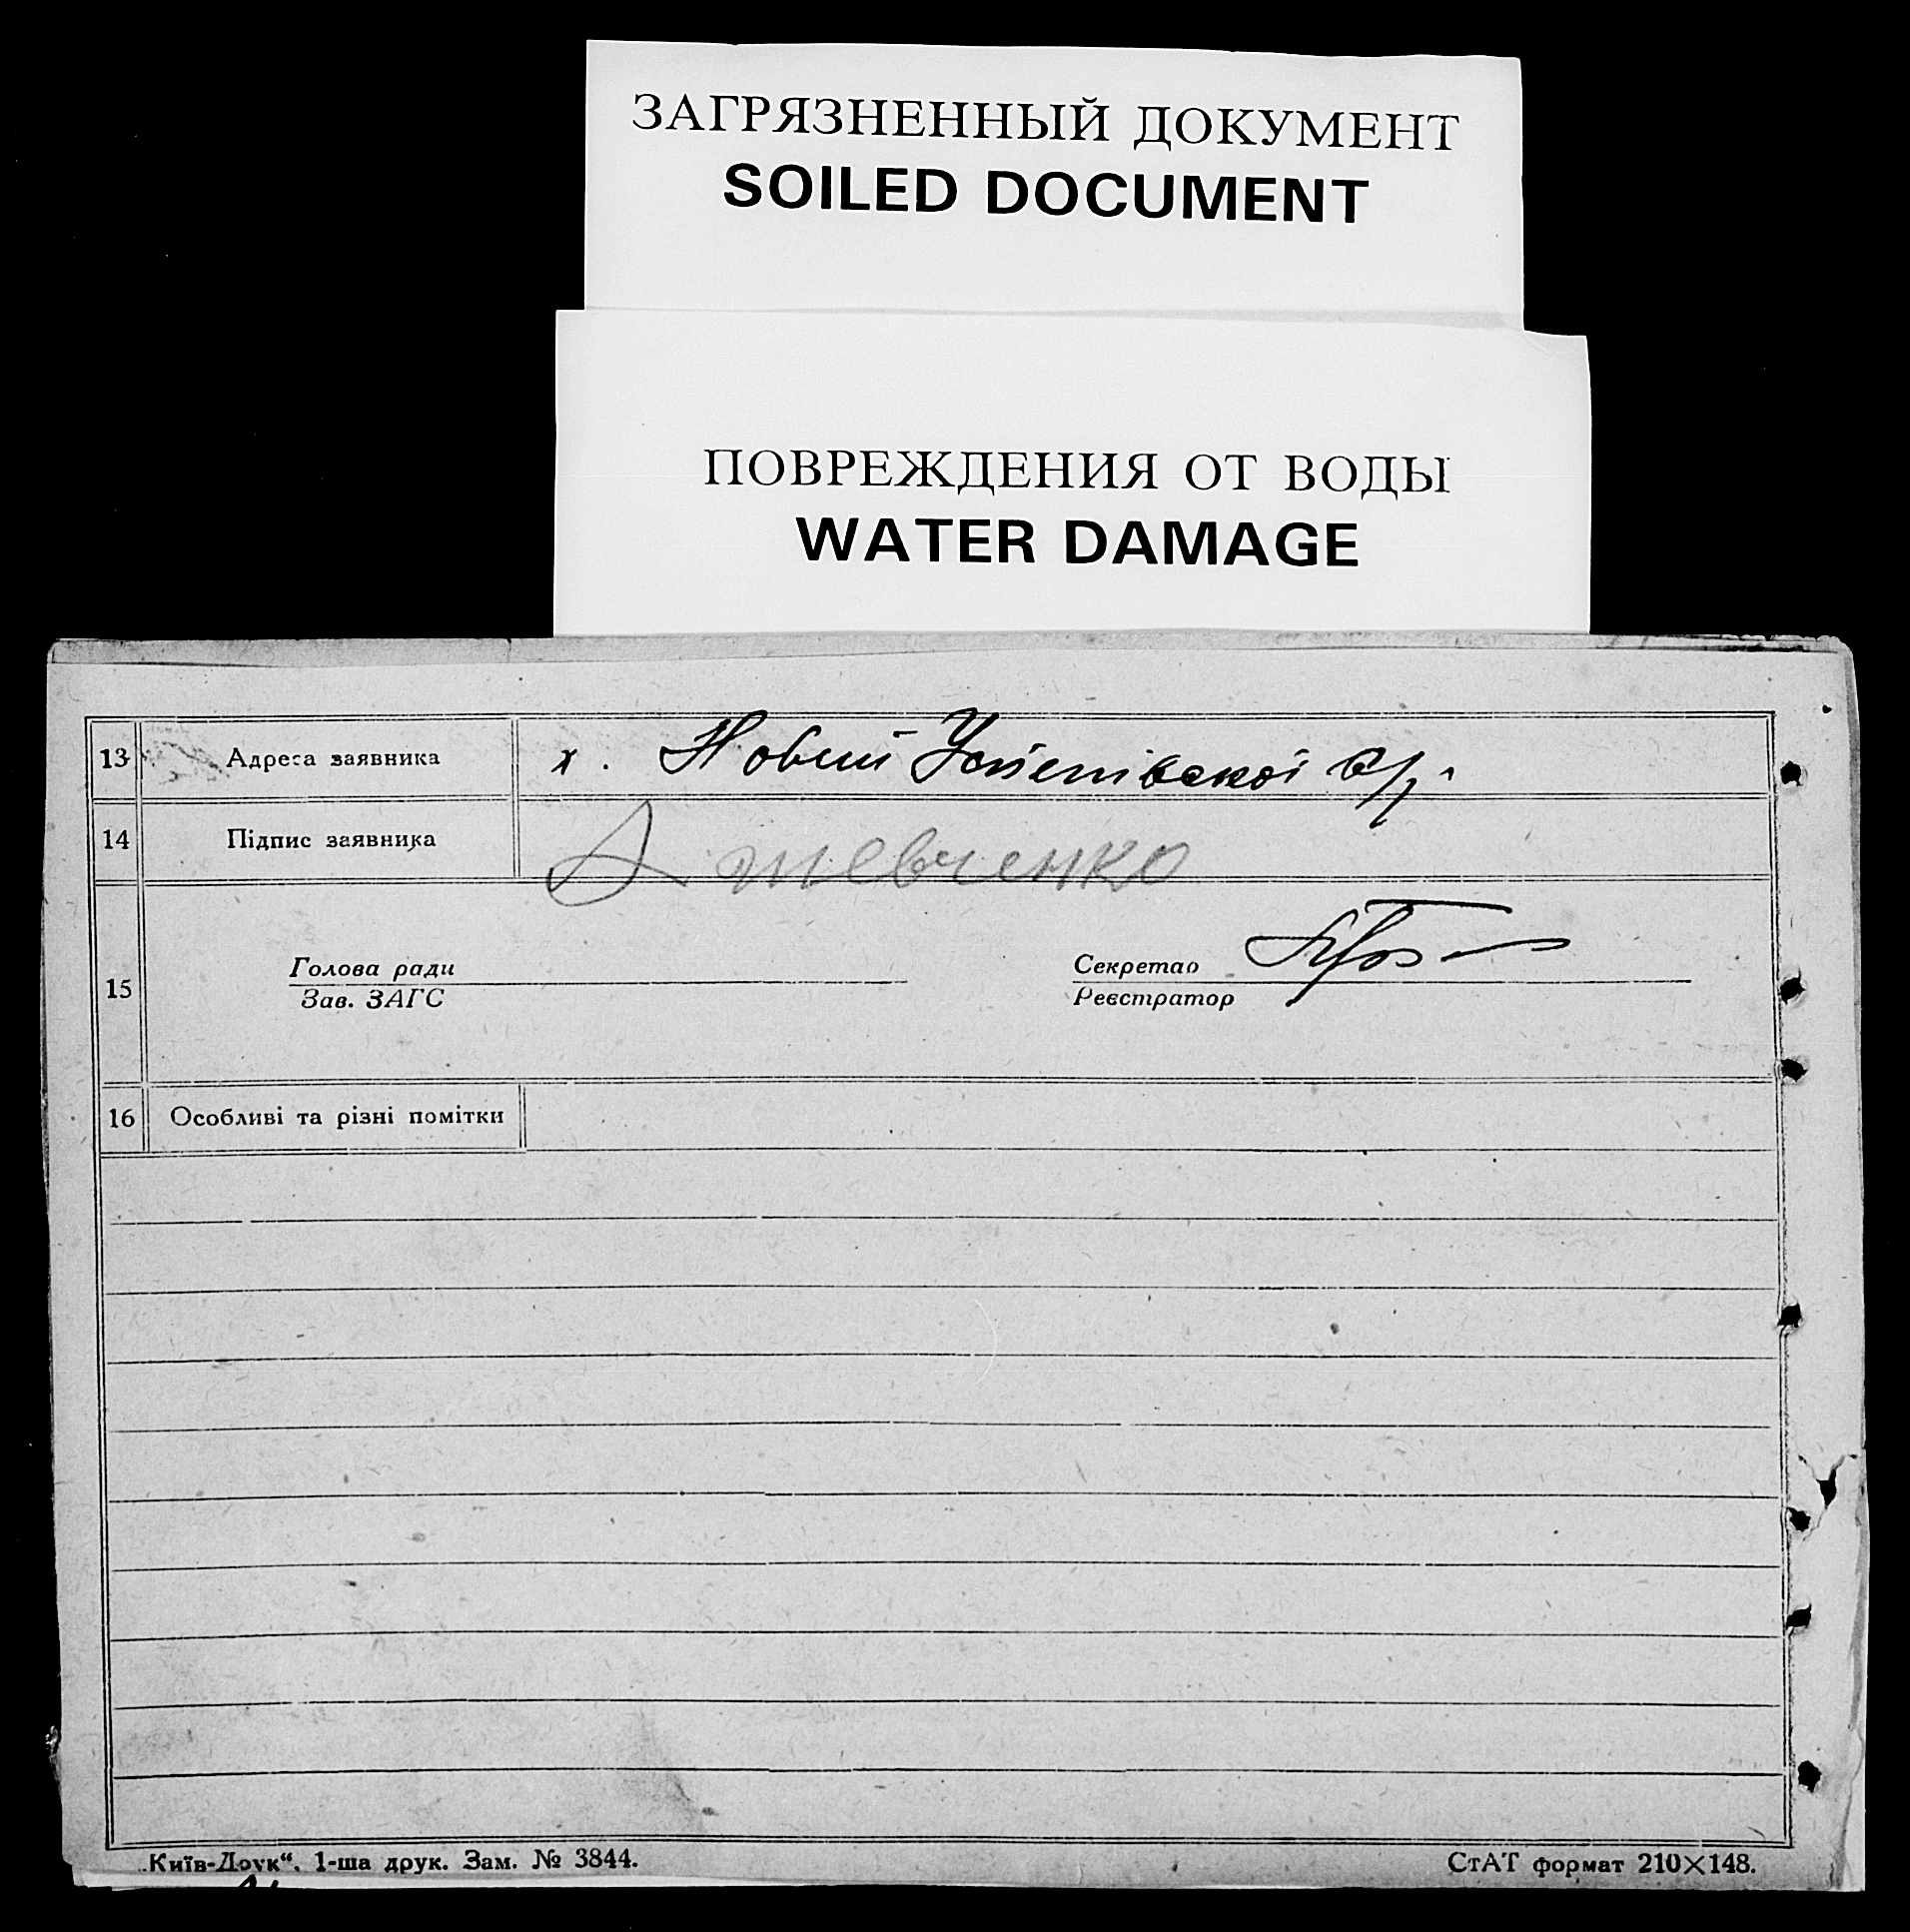 ЗАГРЯЗНЕННЫЙ ДОКУМЕНТ
SOILED DOCUMENT
ПОВРЕЖДЕНИЯ ОТ ВОДЫ
WATER DAMAGE
13 Адреса заявника х. Новий Успенівскої с/р.
14 Підпис заявника Шевченко
15
Голова ради Секретар
Зав. ЗАГС Реєстратор
16 Особливі та різні помітки
„Київ-Друк“, 1-ша друк. Зам. № 3844. СтАТ формат 210×148.